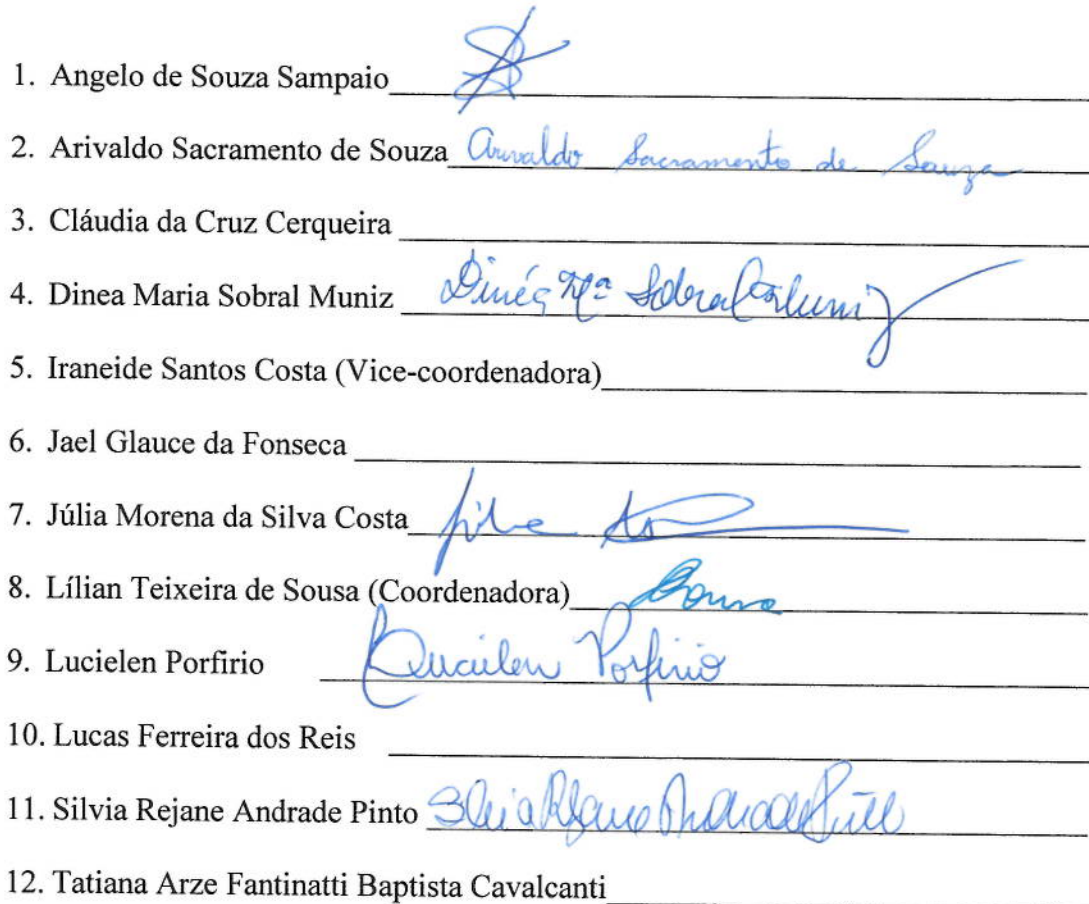 1. Angelo de Souza Sampaio
2. Arivaldo Sacramento de Souza Arivaldo Sacramento de Souza
3. Cláudia da Cruz Cerqueira
4. Dinea Maria Sobral Muniz Dinéa Mª Sobral Muniz
5. Iraneide Santos Costa (Vice-coordenadora)
6. Jael Glauce da Fonseca
7. Júlia Morena da Silva Costa
8. Lílian Teixeira de Sousa (Coordenadora)
9. Lucielen Porfirio Lucielen Porfirio
10. Lucas Ferreira dos Reis
11. Silvia Rejane Andrade Pinto Silvia Rejane Andrade
12. Tatiana Arze Fantinatti Baptista Cavalcanti